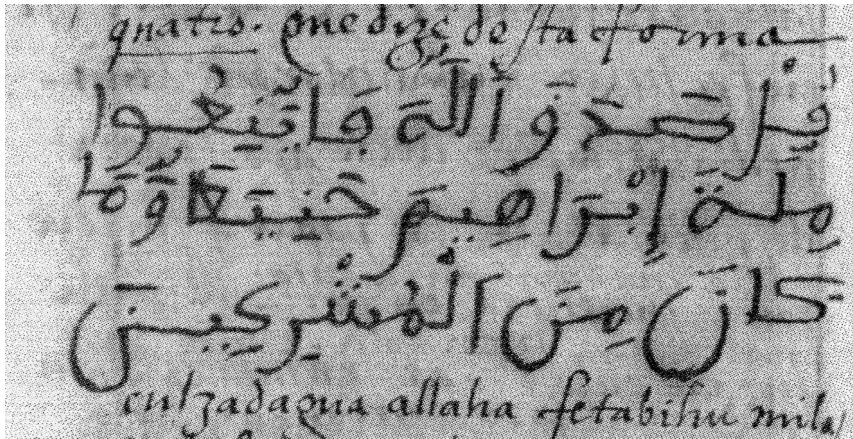 que dize de sta forma
قُلْ صَدَقَ ٱللَّهُ فَاتَّبِعُوا
مِلَّةَ إِبْرَاهِيمَ حَنِيفًا وَّمَا
كَانَ مِنَ الْمُشْرِكِينَ
culzadaqua allaha fetabihu mila